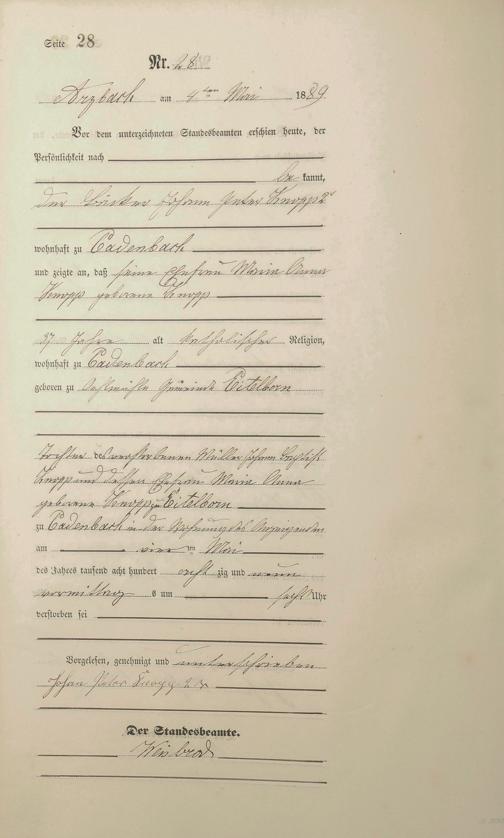 Seite 28
Nr. 28
Arzbach am 4ten Mai 1889
Vor dem unterzeichneten Standesbeamten erschien heute, der
Persönlichkeit nach
be kannt,
der Bäcker Johann Peter Knopp 2r
wohnhaft zu Cadenbach
und zeigte an, daß seine Ehefrau Maria Anna
Knopp geborene Knopp
37 Jahre alt katholischer Religion,
wohnhaft zu Cadenbach
geboren zu Oelmühle Gemeinde Eitelborn
Tochter des verstorbenen Müller Johann
Knopp und dessen Ehefrau Maria Anna
geborene Knopp zu Eitelborn
zu Cadenbach in der Wohnung des Anzeigenden
am vier ten Mai
des Jahres tausend acht hundert acht zig und neun
vormittags um sechs Uhr
verstorben sei
Vorgelesen, genehmigt und unterschrieben
Johan Peter Knopp 2r
Der Standesbeamte.
Weisbrod